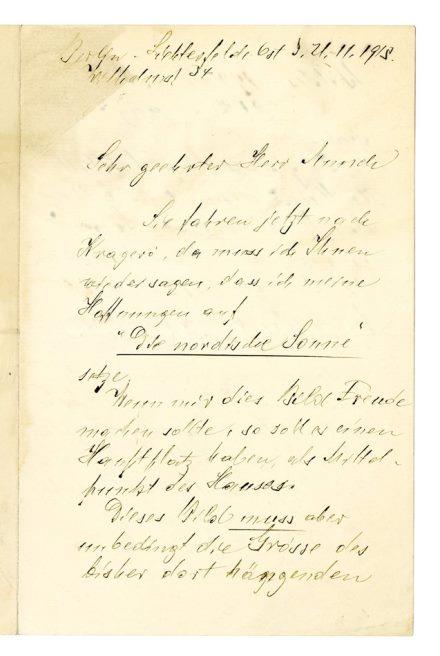 Berlin - Lichterfelde Ost 3. 21.11.1915.
34
Sehr geehrter Herr Munch
Sie fahren jetzt nach
Kragerö, da muss ich Ihnen
wieder sagen, dass ich meine
Hoffnungen auf
"Die nordische Sonne"
setze.
Wenn mir dies Bild Freude
machen sollte, so soll es einen
Hauptplatz haben, als Mittel-
punkt des Hauses.
Dieses Bild muss aber
unbedingt die Grösse des
bisher dort hängenden